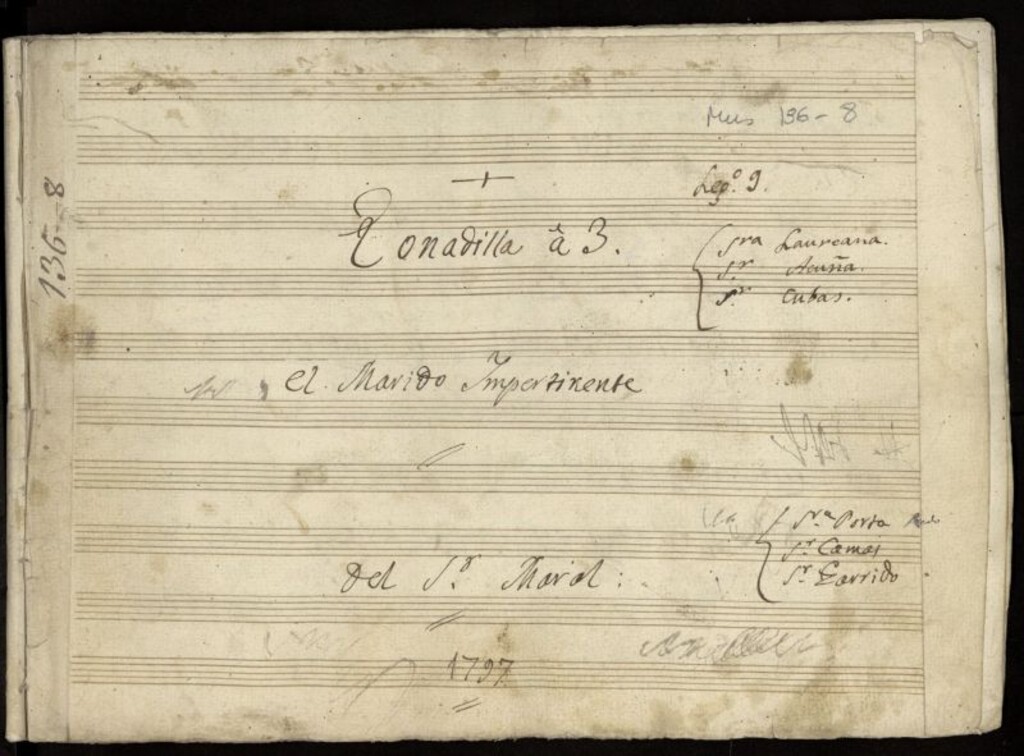 Mus 136-8
136-8
Leg.º 9.
Tonadilla â 3.
Sra Laureana.
Sr Acuña.
Sr Cubas.
el Marido Impertinente
Sr.a Porta
Sr Camas
Sr Garrido
Del S.r Maral:
1797